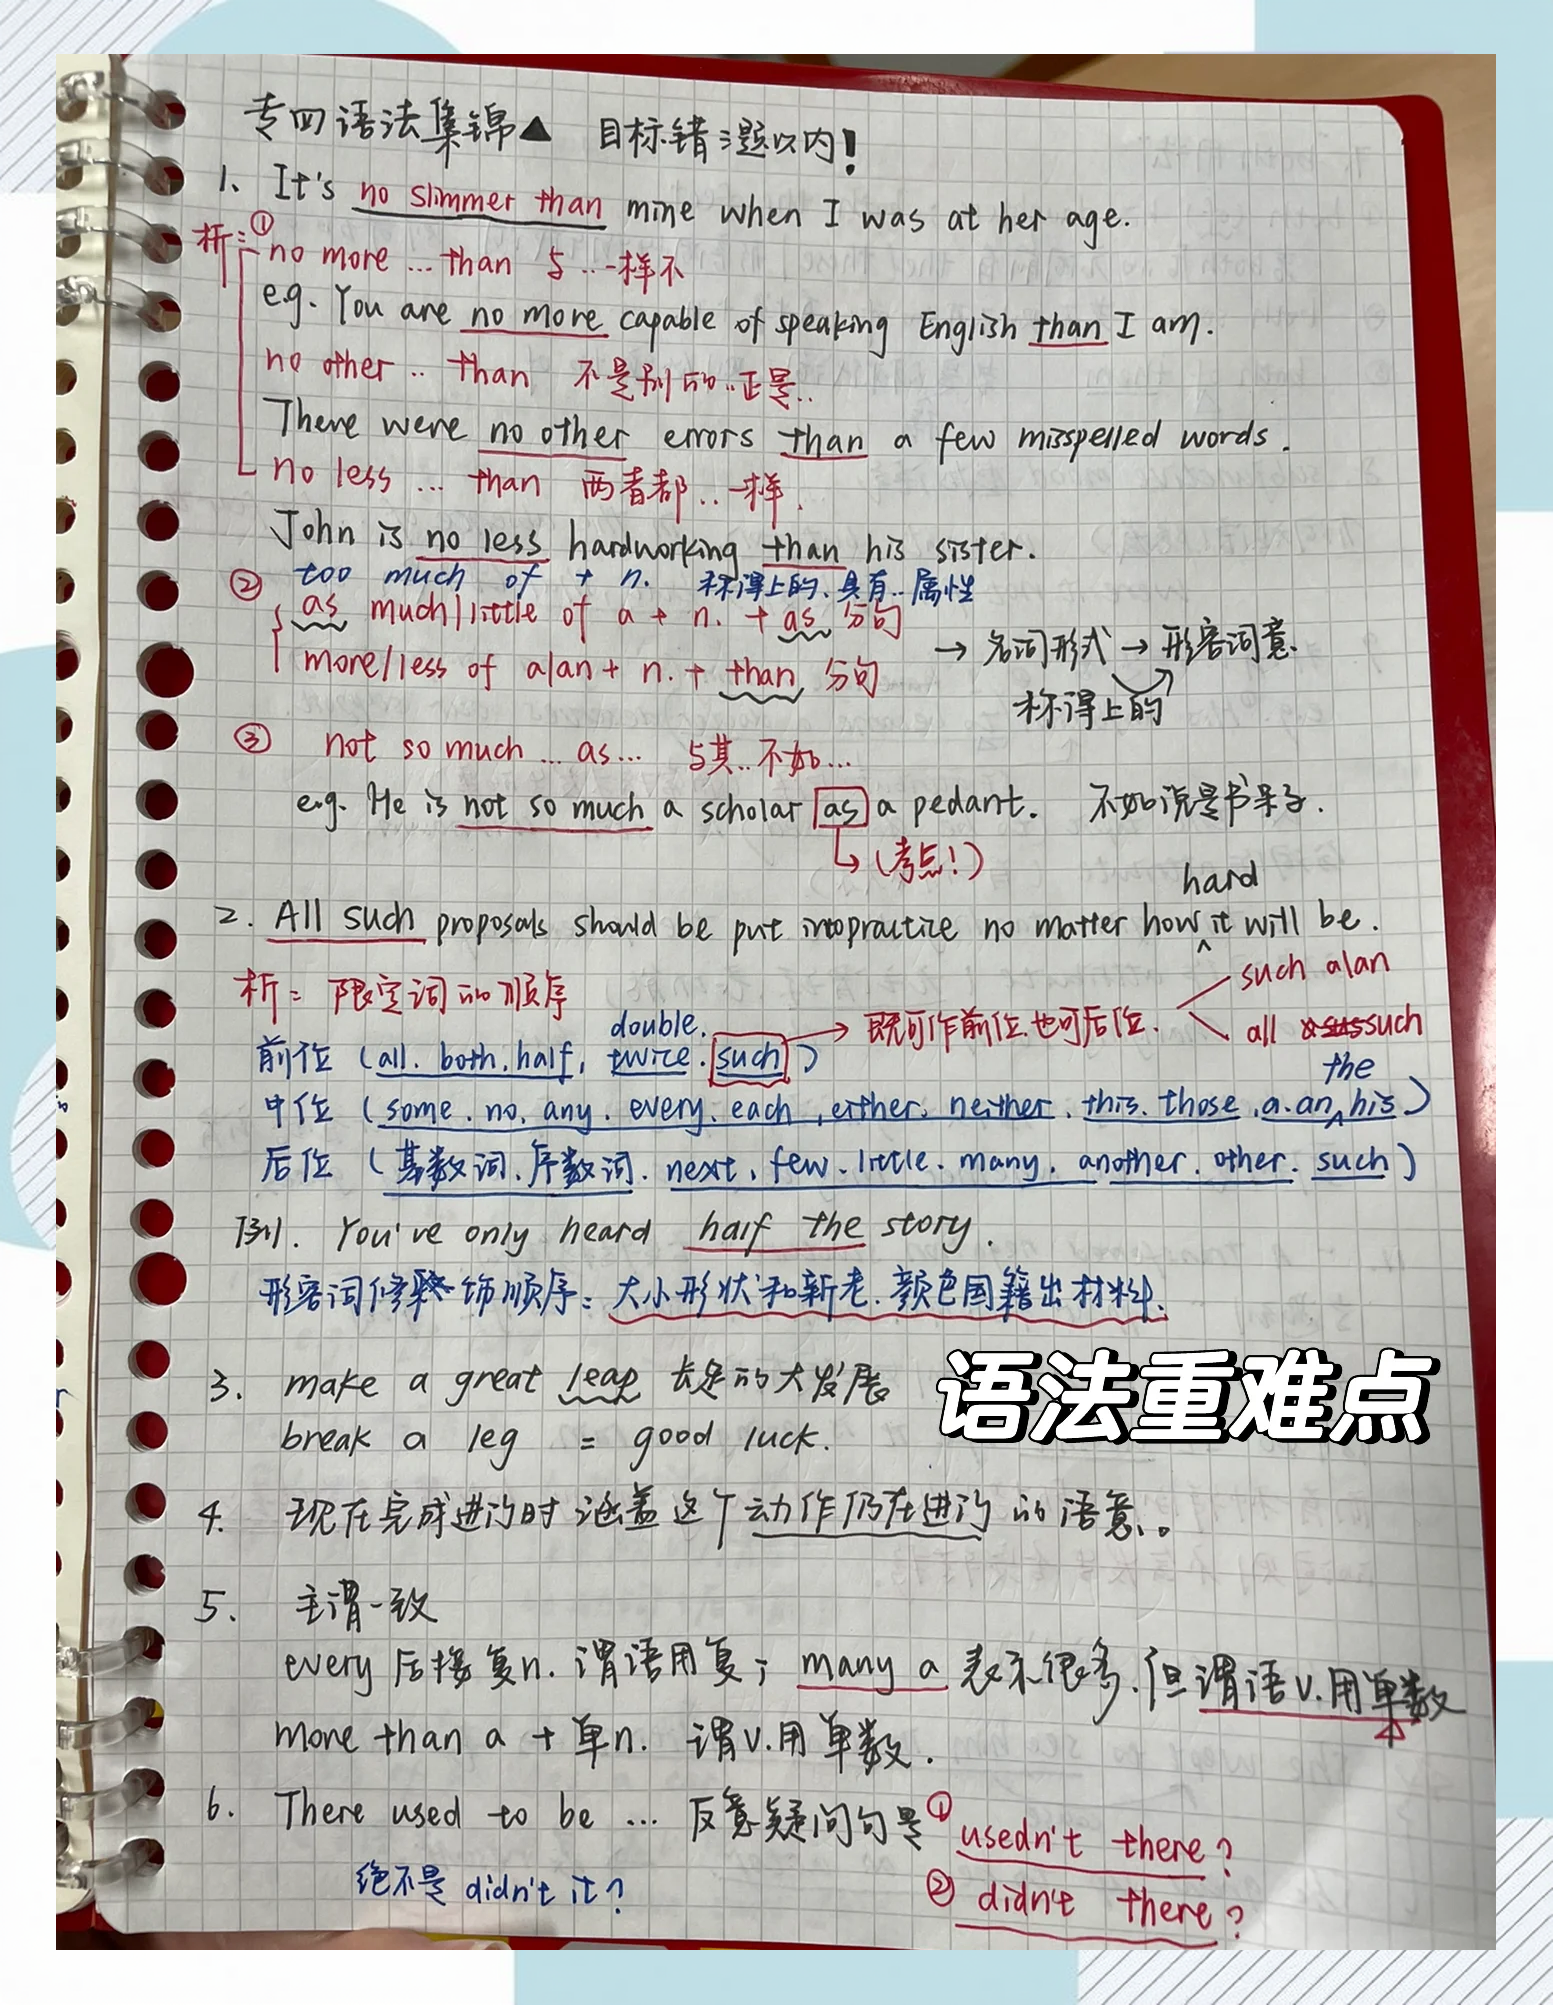 专四语法集锦▲ 目标错3题以内!
1、It's no slimmer than mine when I was at her age.
析: ① no more … than 与…一样不
e.g. You are no more capable of speaking English than I am.
no other .. than 不是别的..正是..
There were no other errors than a few misspelled words.
no less … than 两者都..一样.
John is no less hardworking than his sister.
② too much of + n. 称得上的、具有..属性
as much/little of a + n. + as 分句
more/less of a/an + n. + than 分句
→ 名词形式 → 形容词意.
称得上的
③ not so much … as … 与其..不如…
e.g. He is not so much a scholar as a pedant. 不如说是书呆子.
(考点!)
hard
2. All such proposals should be put into practice no matter how it will be.
析: 限定词的顺序
such a/an
double.
既可作前位.也可后位.
all such
前位 (all. both. half, twice. such)
the
中位 (some. no. any. every. each, either. neither. this. those. a. an his)
后位 (基数词、序数词. next, few. little. many. another. other. such)
例. You've only heard half the story.
形容词修饰顺序: 大小形状和新老.颜色国籍出材料.
3. make a great leap 长足的大发展
break a leg = good luck.
语法重难点
4. 现在完成进行时涵盖这个动作仍在进行的语意.。
5. 主谓一致
every 后接复n. 谓语用复; many a 表示很多.但谓语v.用单数
more than a + 单n. 谓v.用单数.
6. There used to be … 反意疑问句是 ① usedn't there?
绝不是 didn't it?
② didn't there?